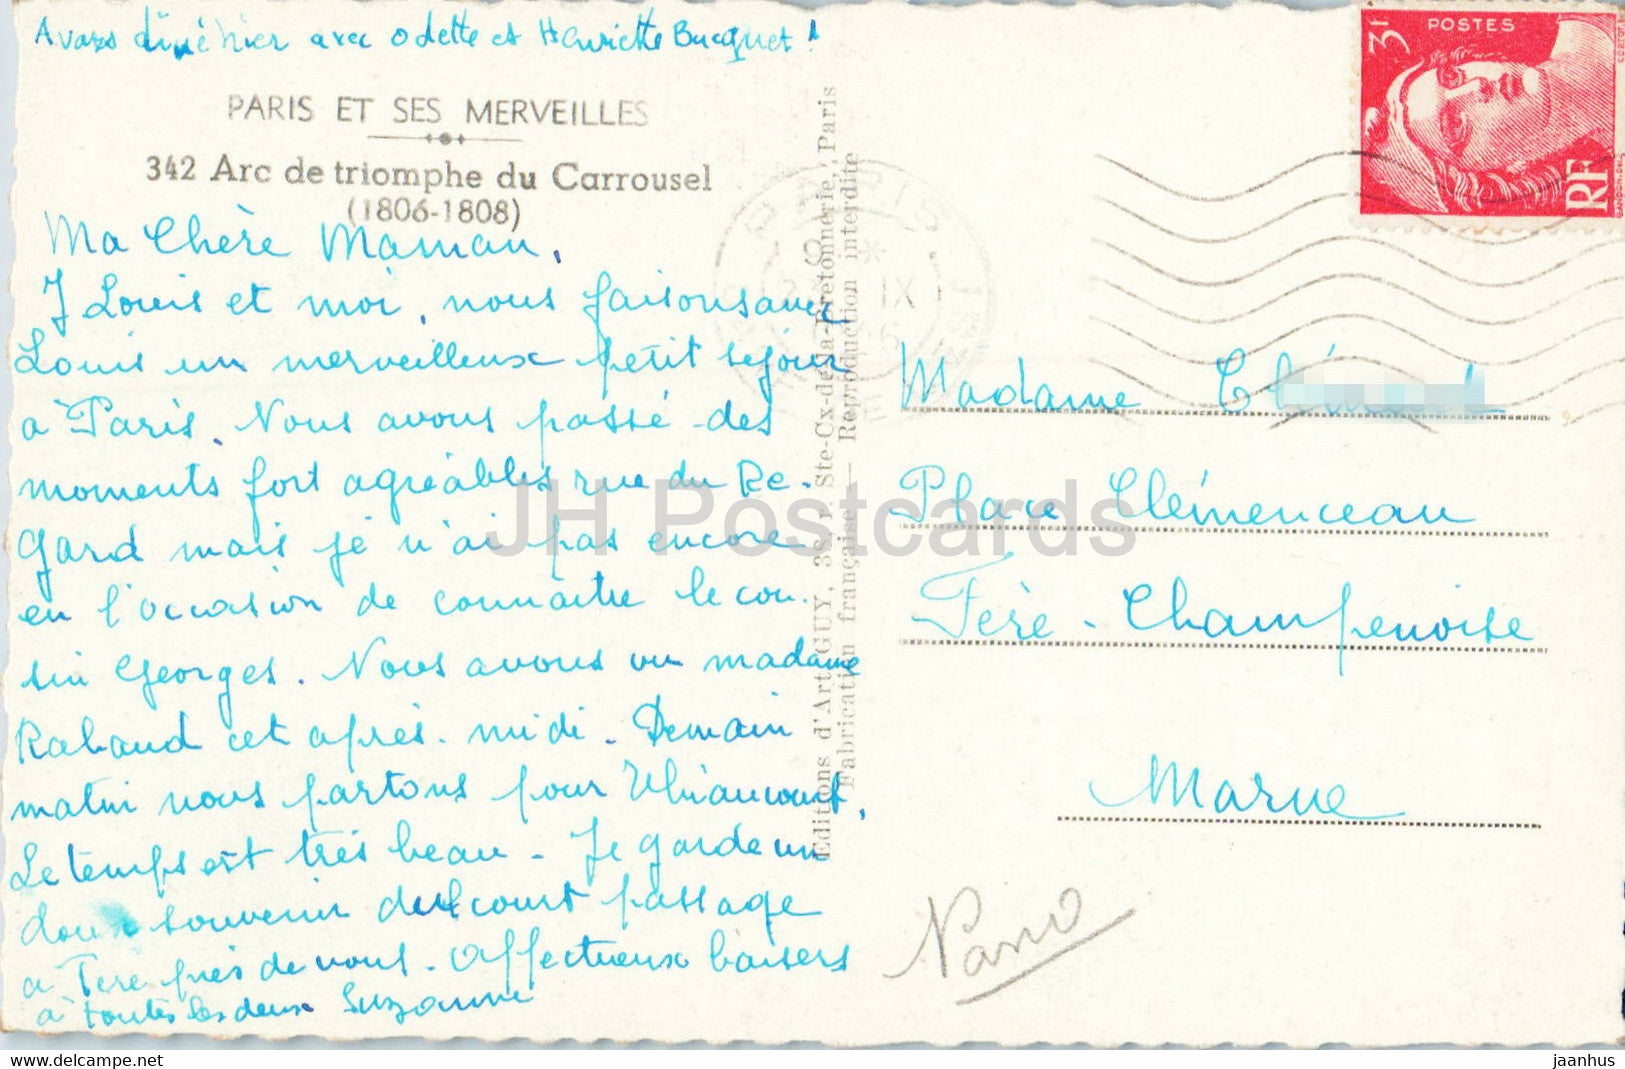 Avons diné hier avec Odette et Henriette Bucquet !
PARIS ET SES MERVEILLES
342 Arc de triomphe du Carrousel
(1806-1808)
Ma Chère Maman,
J Louis et moi, nous faisons avec
Louis un merveilleux petit séjour
à Paris. Nous avons passé des
moments fort agréables rue du Re-
gard mais je n'ai pas encore
eu l'occasion de connaitre le cou-
sin Georges. Nous avons vu madame
Rabaud cet après-midi. Demain
matin nous partons pour Thiaucourt,
Le temps est très beau - Je garde un
doux souvenir du court passage
à Fère près de vous. Affectueux baisers
à toutes les deux Suzanne
Editions d'Art GUY, Ste-Cx-de-la-Bretonnerie, Paris
Fabrication française — Reproduction interdite
3F POSTES
RF
PARIS
IX
Madame
Place Clémenceau
Fère-Champenoise
Marne
JH Postcards
delcampe.net
jaanhus